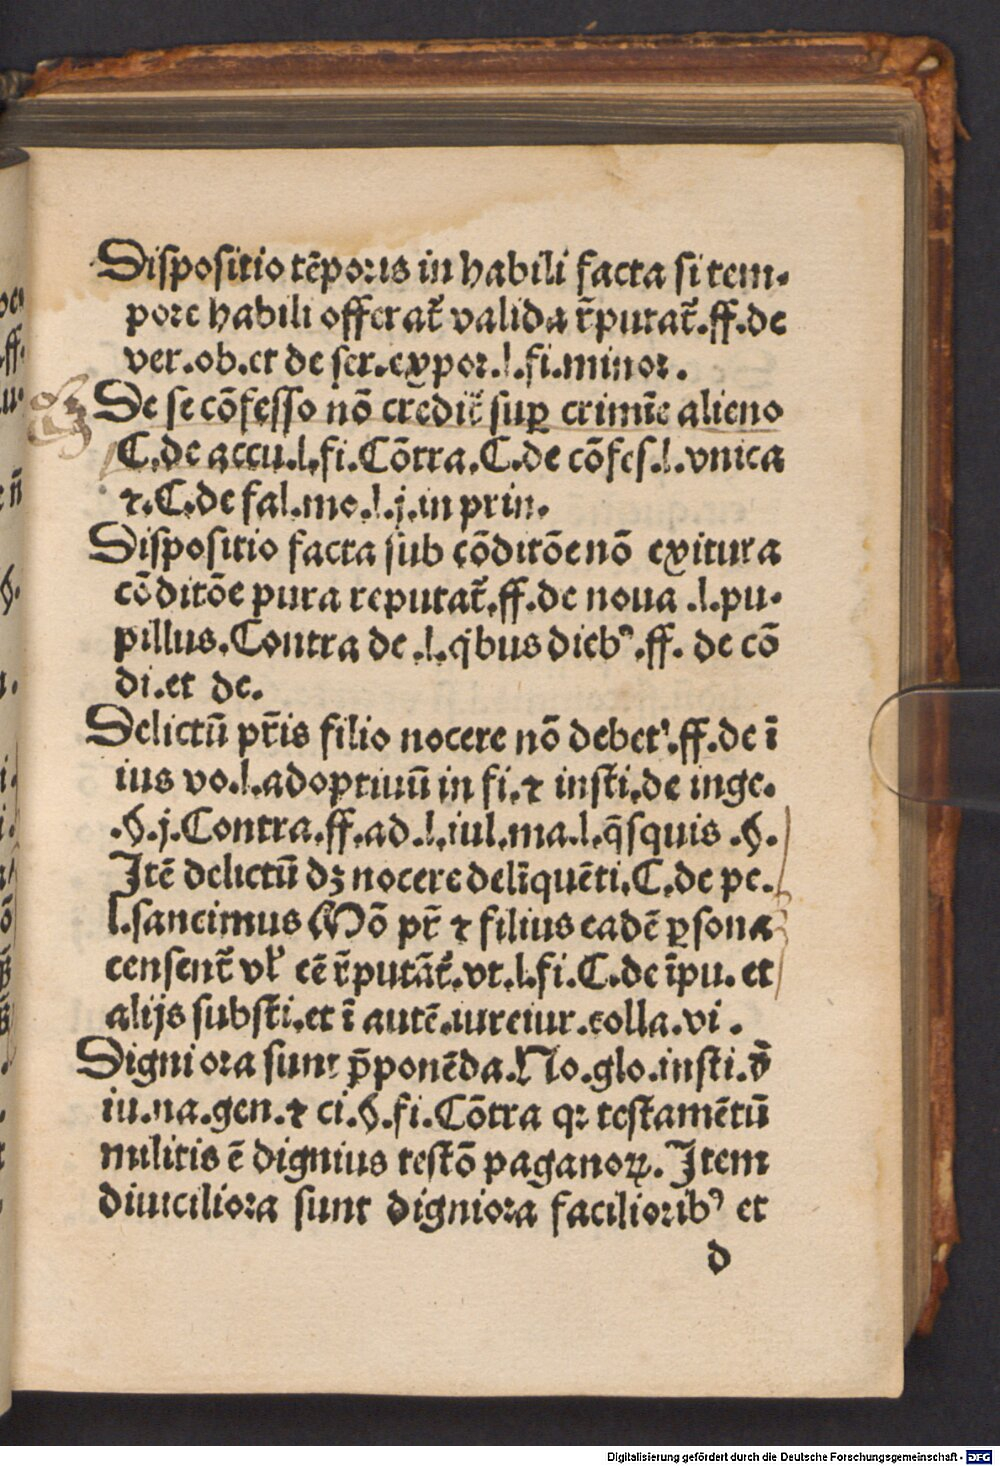 Dispositio tēporis in habili facta si tem-
pore habili offerat᷑ valida r̄putat᷑.ff.de
ver.ob.et de ser.expor.l.fi.minor.
De se cōfesso nō credit᷑ suꝑ crimīe alieno
C.de accu.l.fi.Cōtra.C.de cōfes.l.vnica
⁊.C.de fal.mo.l.j.in prin.
Dispositio facta sub cōditōe nō exitura
cōditōe pura reputat᷑.ff.de noua .l.pu-
pillus.Contra de .l.qͥbus dieb⁹.ff. de cō
di.et de.
Delictū pr̄is filio nocere nō debet.ff.de ī
ius vo.l.adoptiuū in fi.⁊ insti.de inge.
.§.j.Contra.ff.ad.l.iul.ma.l.q̄squis .§.
Itē delictū dꝫ nocere delīquēti.C.de pe.
l.sancimus Mō pr̄ ⁊ filius eadē ꝑsona
censent᷑ vl' eē r̄putāt᷑.vt.l.fi.C.de īpu. et
alijs substi.et ī autē.iureiur.colla.vi .
Digniora sunt p̄ponēda.No.glo.insti.d̄
iu.na.gen.⁊ ci.§.fi.Cōtra qꝛ testamētū
militis ē dignius testō paganoꝝ. Item
diuiciliora sunt digniora faciliorib⁹ et
d
Digitalisierung gefördert durch die Deutsche Forschungsgemeinschaft - DFG